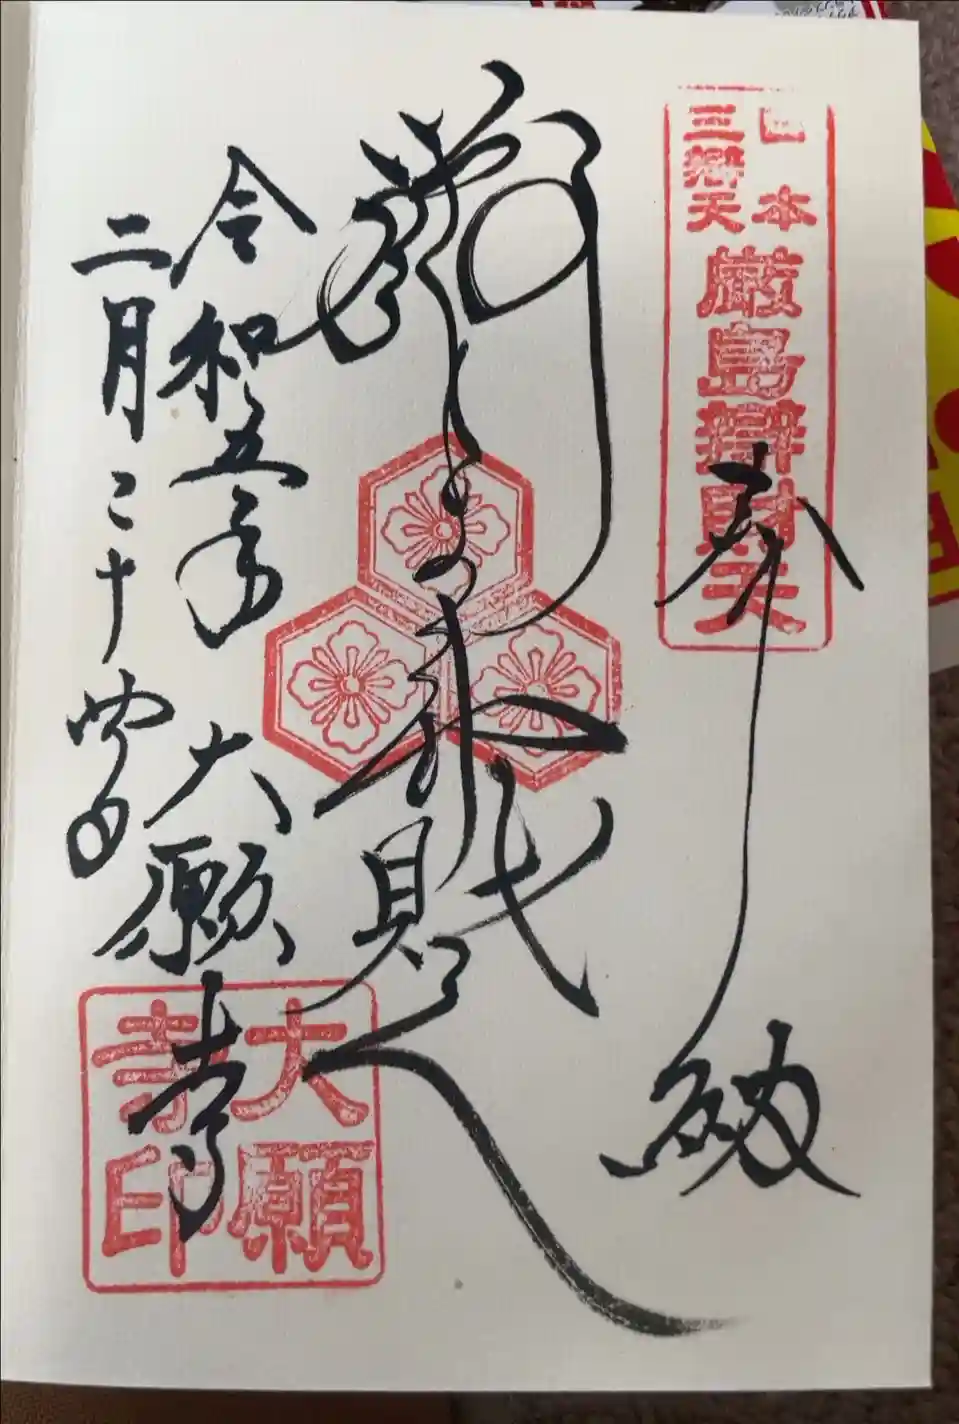 日本
三辯天
厳島辯財天
奉
納
辯財天
令和五年
二月二十四日
大願寺
大願
寺印